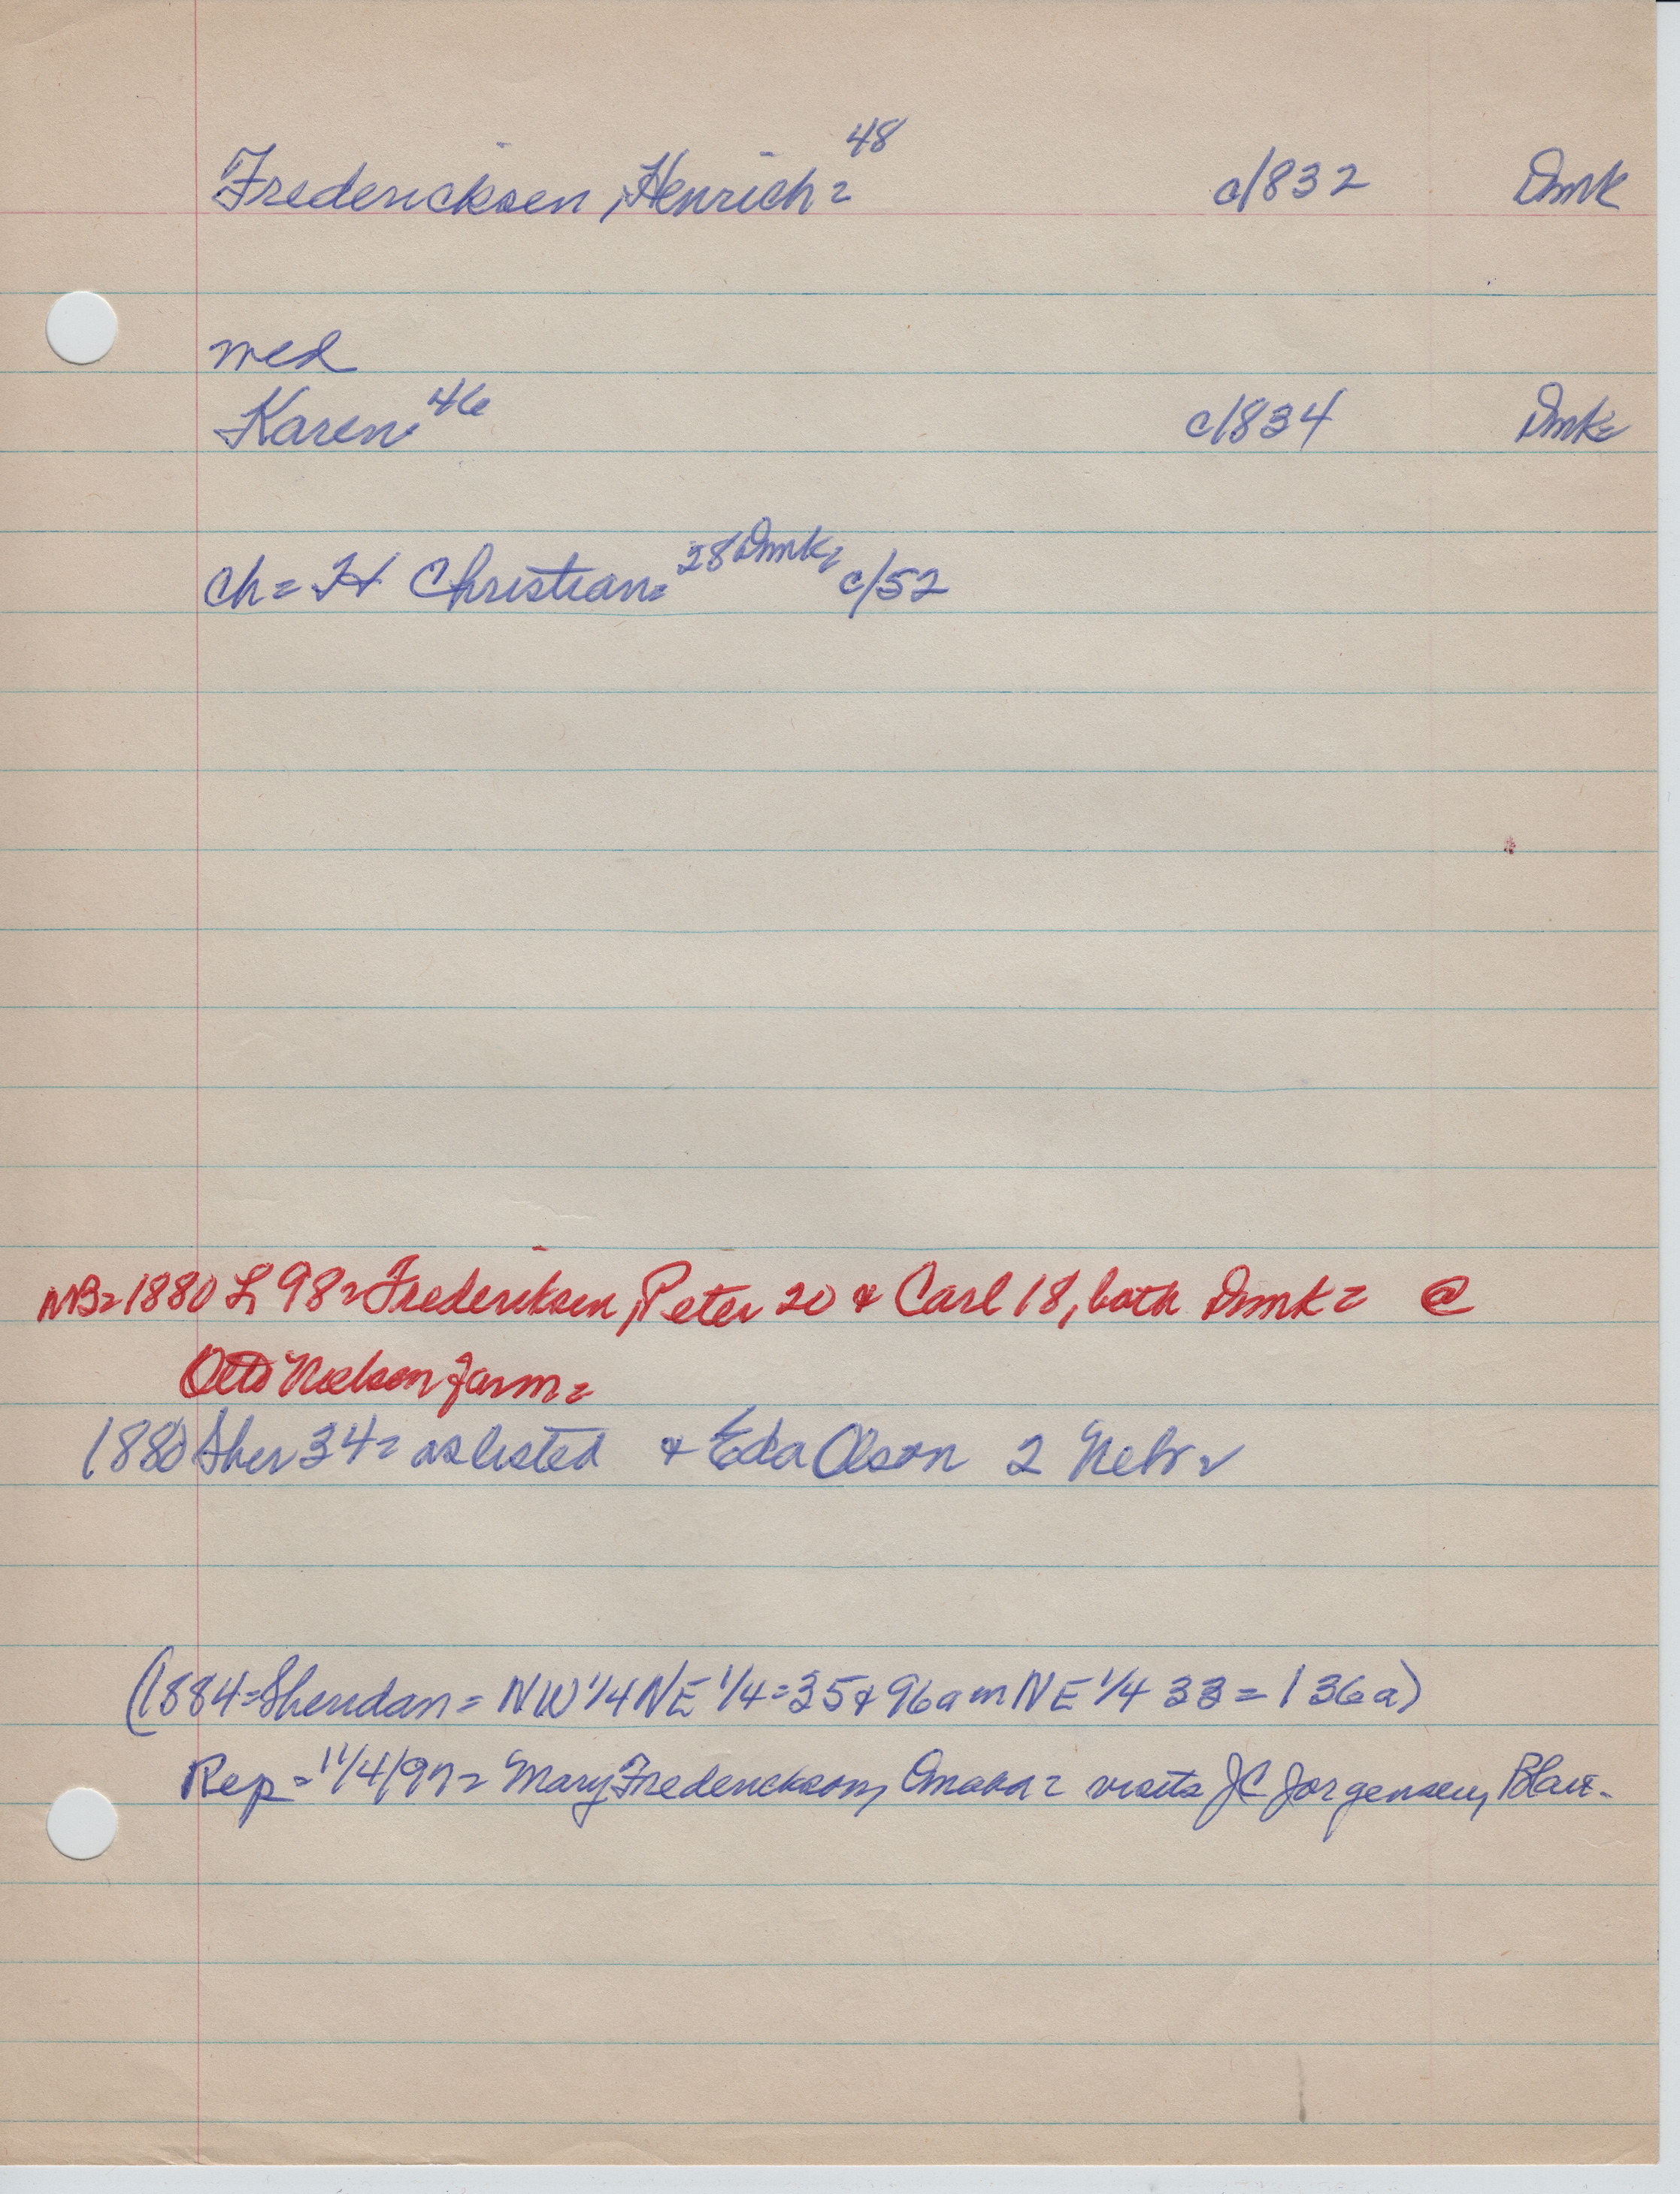 Fredericksen, Henrich = 48 c/832 Dmk
med
Karen 46 c/834 Dmk=
ch = H Christian = 28 Dmk, c/52
NB = 1880 L 98 = Frederiksen, Peter 20 & Carl 18, both Dmk = @
Otto Nielson farm =
1880 Sher 34 = as listed & Eda Olson 2 Nebr
(1884 = Sheridan = NW 1/4 NE 1/4 = 35 & 96a in NE 1/4 33 = 136a)
Rep = 11/4/97 = Mary Frederickson, Omaha = visits JC Jorgensen, Blair.